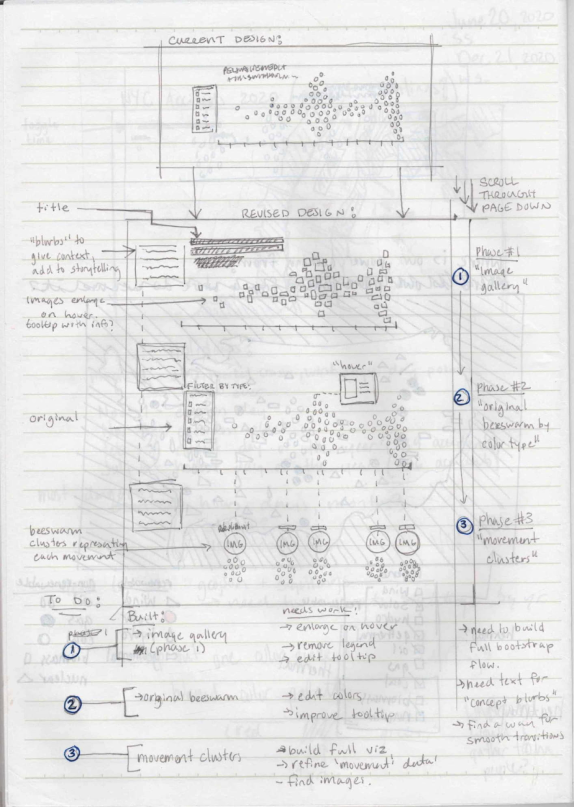 CURRENT DESIGN:
SCROLL
THROUGHT
PAGE DOWN
title
REVISED DESIGN:
"blurbs" to
give context,
add to storytelling
images enlage
on hover.
tooltip with info?
Phase #1
"image
gallery"
1
"hover"
FILTER BY TYPE:
original
2
Phase #2
"original
beeswarm by
color type"
3
Phase #3
"movement
clusters"
beeswarm
clusters representing
each movement
IMG
IMG
IMG
IMG
IMG
To do:
Built:
needs work:
phase 1
1
→ image gallery
(phase 1)
→ enlarge on hover
→ remove legend
→ edit tooltip
→ need to build
full bootstrap
flow.
→ need text for
"concept blurbs"
→ find a way for
smooth transitions
2
→ original beeswarm
→ edit colors
→ improve tooltip
3
movement clusters
→ build full viz
→ refine 'movement' data'
- find images.